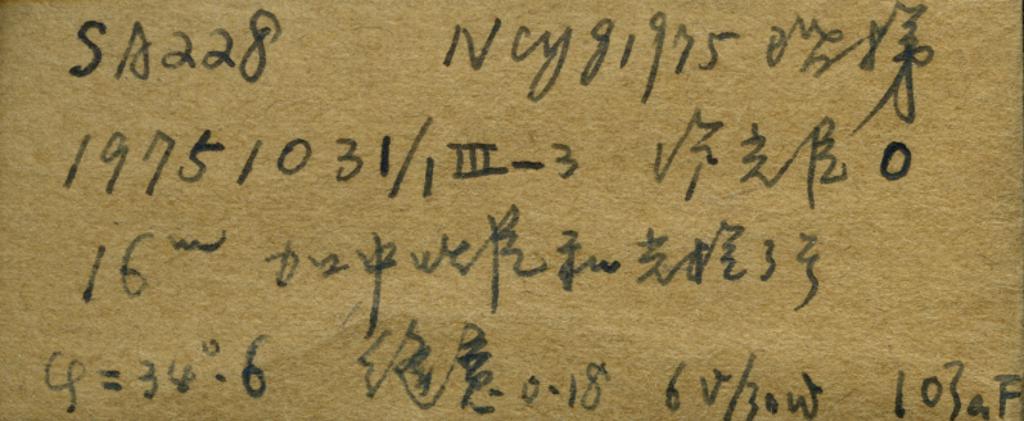 SA228 NCyg1975 阶梯
19751031/1 III-3 冷光度 0
16ᵐ 加中性片和光栏3号
φ=34°.6 缝宽 0.18 6V/30W 103aF